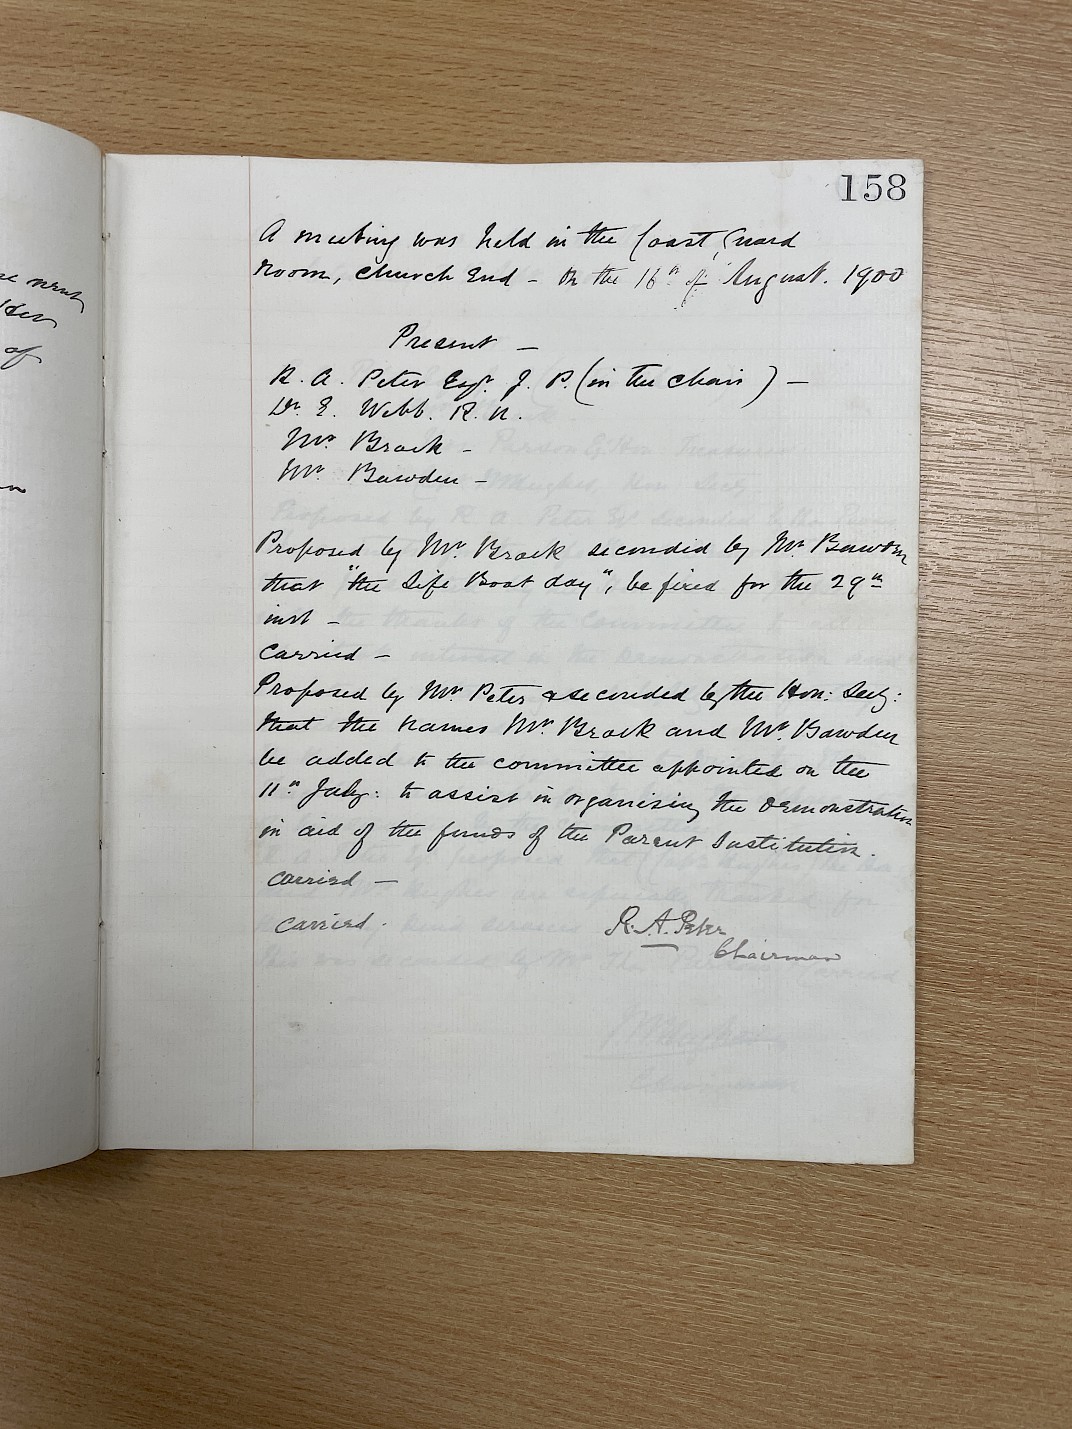 158
A meeting was held in the Coast Guard
Room, Church End – On the 16th of August. 1900
Present –
R. A. Peter Esqr. J. P. (in the chair) –
Dr. E. Webb. R. N.
Mr Brock –
Mr. Bawden –
Proposed by Mr. Brock seconded by Mr Bawden
that "the Life Boat day", be fixed for the 29th
inst –
Carried –
Proposed by Mr Peter & seconded by the Hon: Secy:
that the names Mr. Brock and Mr. Bawden
be added to the committee appointed on the
11th July: to assist in organising the Demonstration
in aid of the funds of the Parent Institution.
Carried –
Carried.
R. A. Peter
Chairman
of